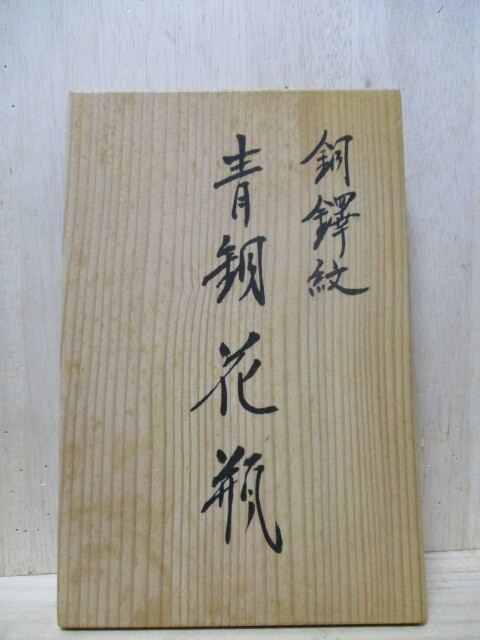 銅鐸紋
青銅花瓶